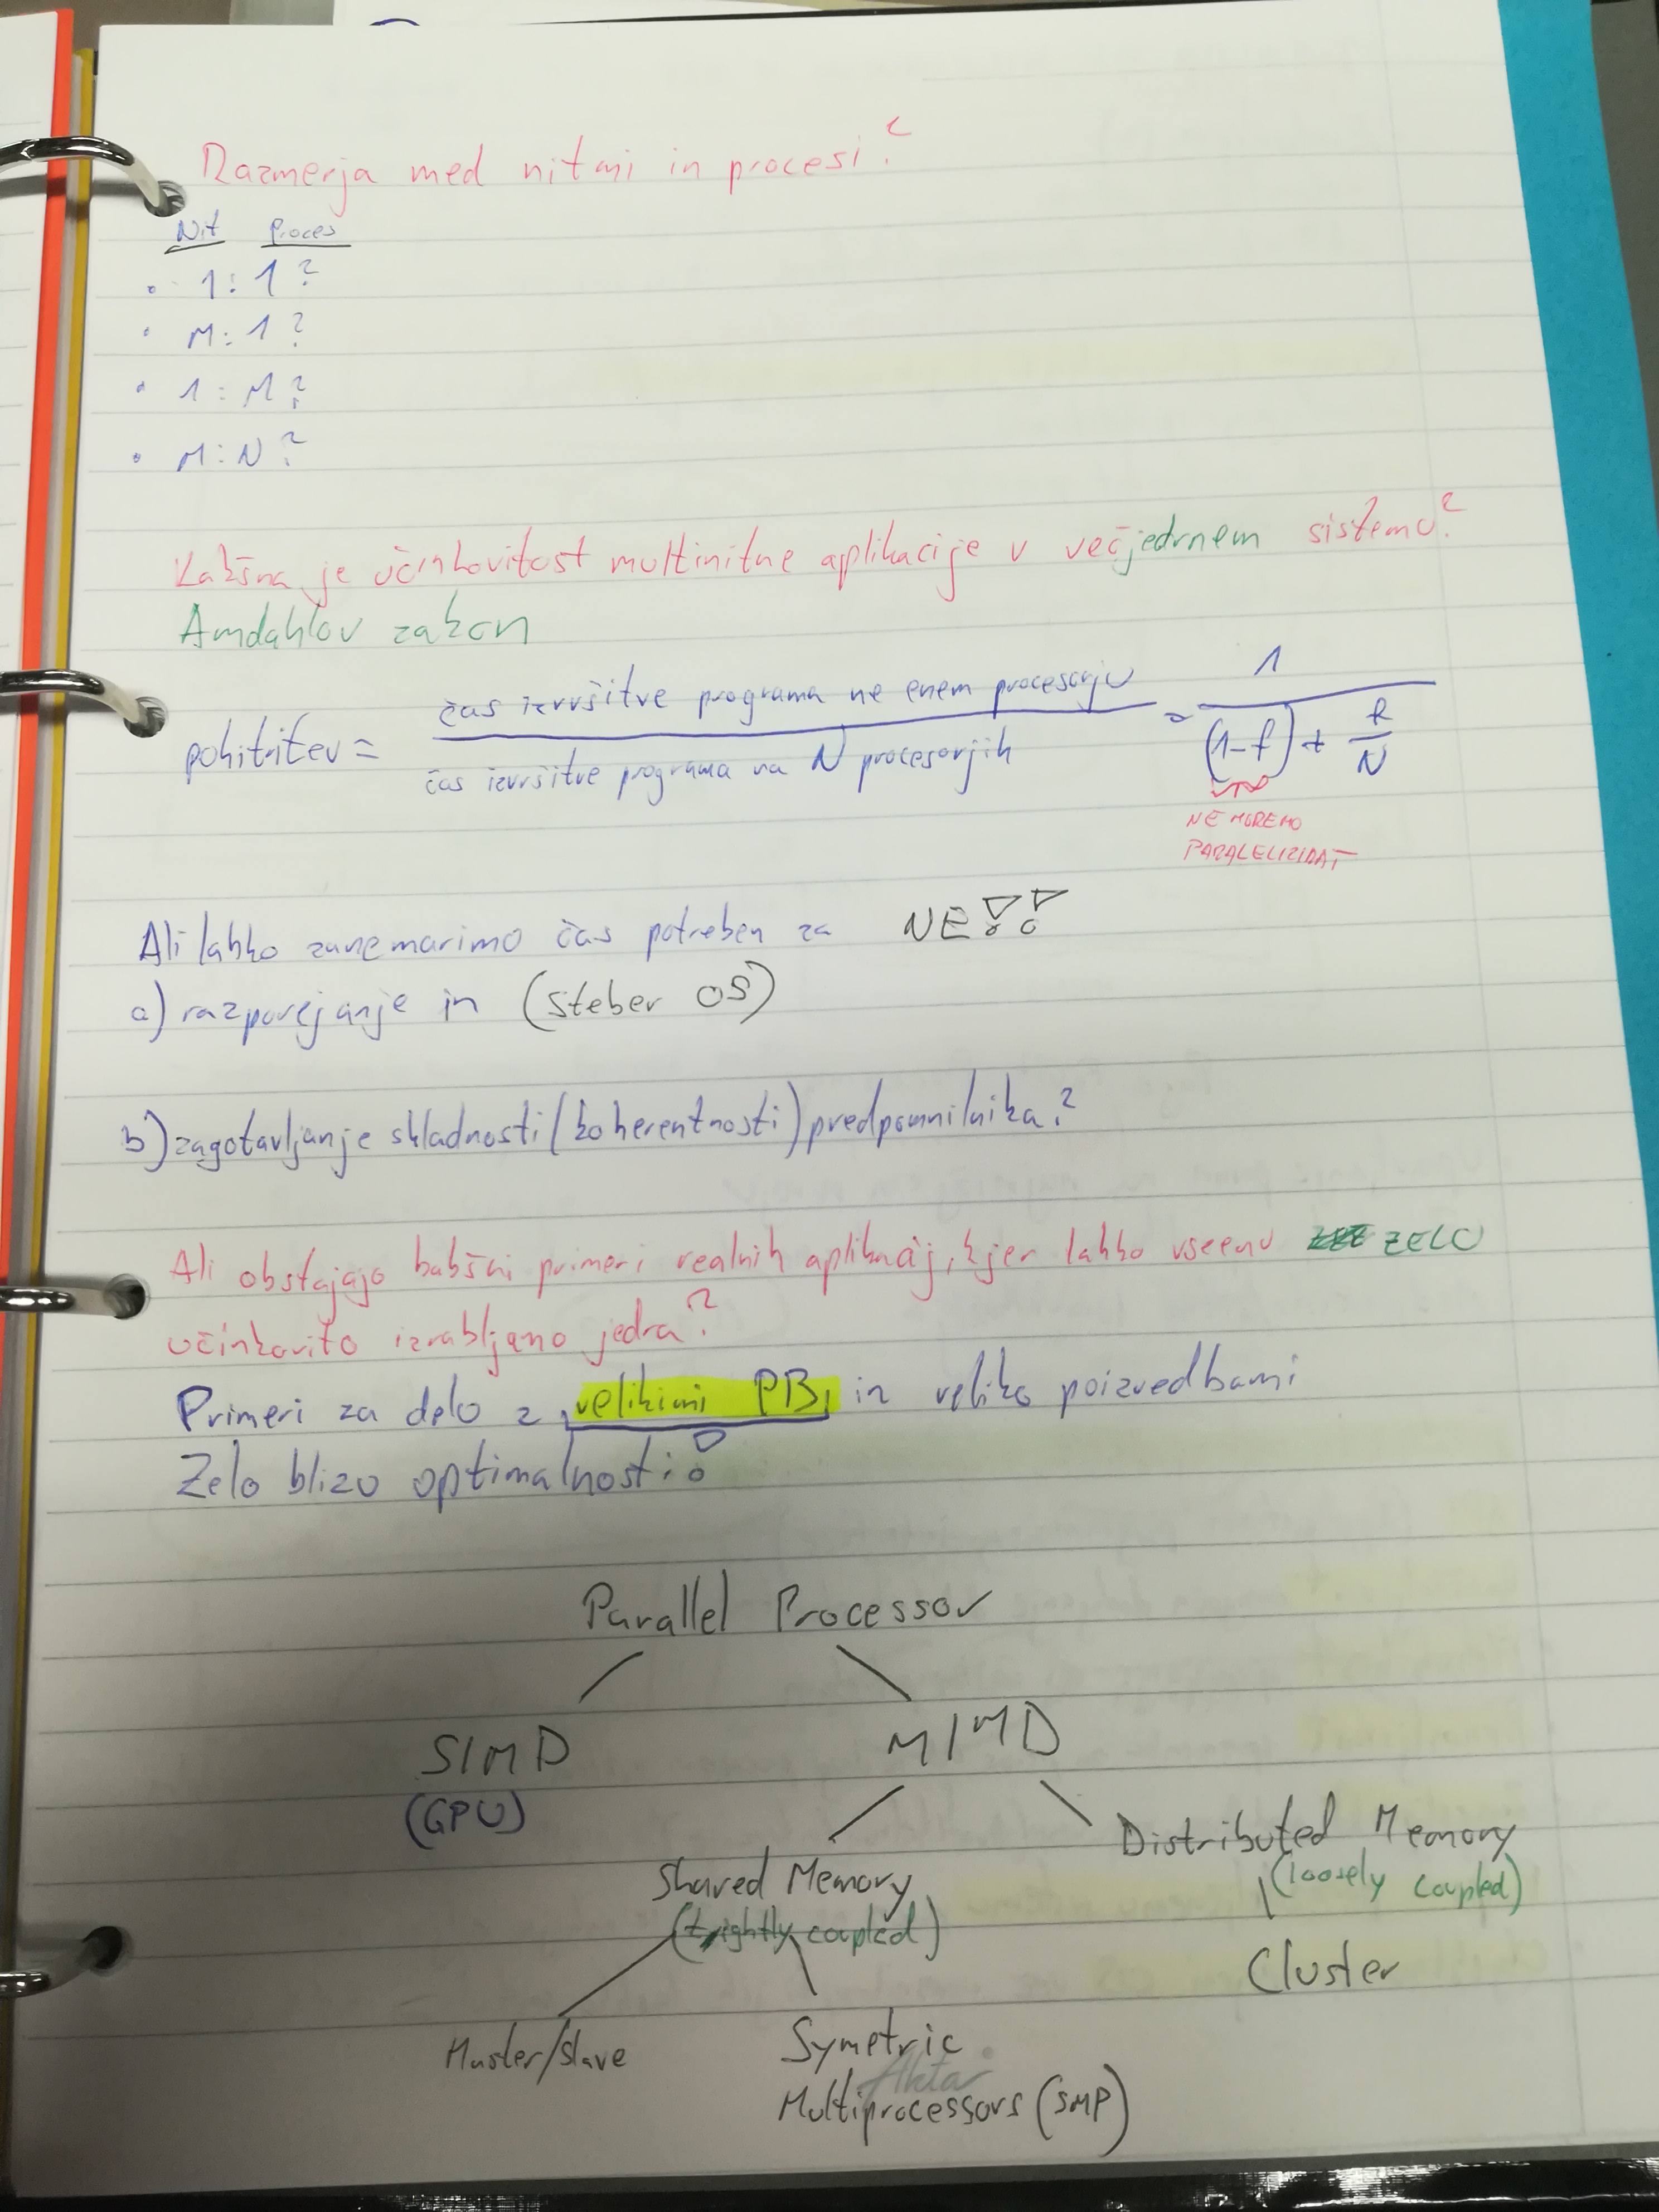 Razmerja med nitmi in procesi?
Nit Proces
• 1:1?
• M:1?
• 1:M?
• M:N?
Kakšna je učinkovitost multinitne aplikacije v večjedrnem sistemu?
Amdahlov zakon
pohitritev = čas izvršitve programa ne enem procesorju / čas izvršitve programa na N procesorjih = 1 / (1-f) + f/N
NE MOREMO
PARALELIZIRAT
Ali lahko zanemarimo čas potreben za NE!!
a) razporejanje in (steber OS)
b) zagotavljanje skladnosti (koherentnosti) predpomnilnika?
Ali obstajajo kakšni primeri realnih aplikacij, kjer lahko vseeno ZELO
učinkovito izrabljamo jedra?
Primeri za delo z velikimi PB, in veliko poizvedbami
Zelo blizu optimalnosti!
Parallel Processor
SIMD MIMD
(GPU)
Shared Memory Distributed Memory
(tightly coupled) (loosely coupled)
Cluster
Master/Slave Symetric
Multiprocessors (SMP)
Akta